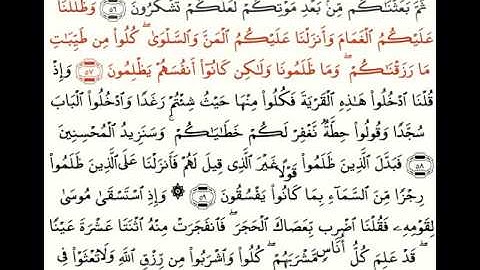 ثُمَّ بَعَثْنَاكُم مِّنۢ بَعْدِ مَوْتِكُمْ لَعَلَّكُمْ تَشْكُرُونَ ﴿٥٦﴾ وَظَلَّلْنَا
عَلَيْكُمُ الْغَمَامَ وَأَنزَلْنَا عَلَيْكُمُ الْمَنَّ وَالسَّلْوَىٰ ۖ كُلُوا۟ مِن طَيِّبَاتِ
مَا رَزَقْنَاكُمْ ۖ وَمَا ظَلَمُونَا وَلَٰكِن كَانُوٓا۟ أَنفُسَهُمْ يَظْلِمُونَ ﴿٥٧﴾ وَإِذْ
قُلْنَا ادْخُلُوا۟ هَٰذِهِ الْقَرْيَةَ فَكُلُوا۟ مِنْهَا حَيْثُ شِئْتُمْ رَغَدًا وَادْخُلُوا۟ الْبَابَ
سُجَّدًا وَقُولُوا۟ حِطَّةٌ نَّغْفِرْ لَكُمْ خَطَايَاكُمْ ۚ وَسَنَزِيدُ الْمُحْسِنِينَ
﴿٥٨﴾ فَبَدَّلَ الَّذِينَ ظَلَمُوا۟ قَوْلًا غَيْرَ الَّذِي قِيلَ لَهُمْ فَأَنزَلْنَا عَلَى الَّذِينَ ظَلَمُوا۟
رِجْزًا مِّنَ السَّمَآءِ بِمَا كَانُوا۟ يَفْسُقُونَ ﴿٥٩﴾ ۞ وَإِذِ اسْتَسْقَىٰ مُوسَىٰ
لِقَوْمِهِۦ فَقُلْنَا اضْرِب بِّعَصَاكَ الْحَجَرَ ۖ فَانفَجَرَتْ مِنْهُ اثْنَتَا عَشْرَةَ عَيْنًا
ۖ قَدْ عَلِمَ كُلُّ أُنَاسٍ مَّشْرَبَهُمْ ۖ كُلُوا۟ وَاشْرَبُوا۟ مِن رِّزْقِ اللَّهِ وَلَا تَعْثَوْا۟ فِي